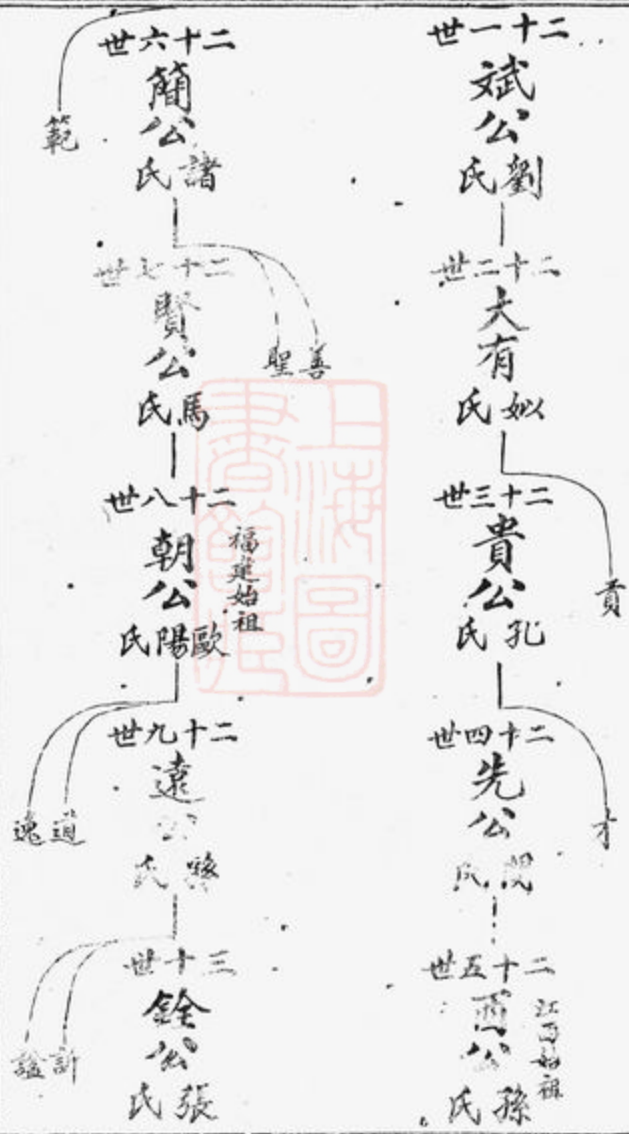 二十一世
斌公
劉氏
二十二世
大有
姒氏
二十三世
貴公
孔氏
貢
二十四世
先公
閔氏
才
二十五世
公
孫氏
江西始祖
二十六世
簡公
諸氏
範
二十七世
賢公
馬氏
善
聖
二十八世
朝公
歐陽氏
福建始祖
二十九世
遠公
氏
道
逸
三十世
銓公
張氏
訢
謚
上海圖
書館藏